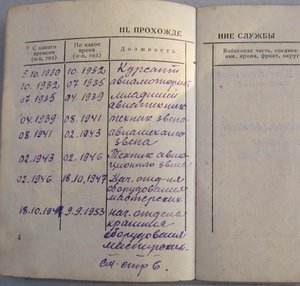 III. ПРОХОЖДЕ
НИЕ СЛУЖБЫ
С какого времени (м-ц, год)
По какое время (м-ц, год)
Должность
Войсковая часть, соедине-
ние, время, фронт, округ
10.1930 10.1932 Курсант
10.1932 07.1935 авиамоторист
07.1935 04.1939 младший
авиатехник
04.1939 08.1941 техник звена
08.1941 02.1943 авиамеханик
звена
02.1943 02.1946 Техник авиа-
ционного звена
02.1946 18.10.1947 Нач. отд-ия
оборудования
мастерских
18.10.1947 9.9.1953 нач. отдела
хранения
оборудования
мастерских.
см. стр 6.
4